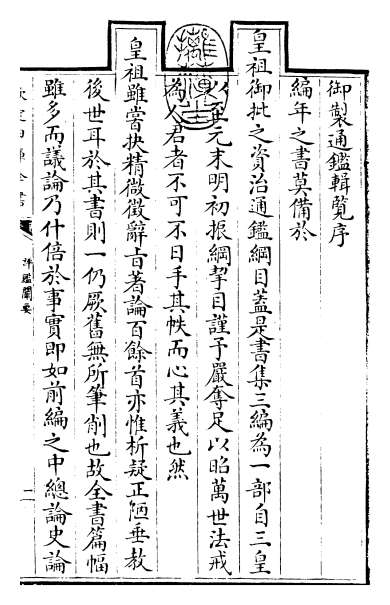 御製通鑑輯覽序
編年之書莫備於
皇祖御批之資治通鑑綱目蓋是書集三編為一部自三皇
以至元末明初振綱挈目謹予嚴奪足以昭萬世法戒
為人君者不可不日手其帙而心其義也然
皇祖雖嘗抉精微徵辭㫖著論百餘首亦惟析疑正陋垂教
後世耳於其書則一仍厥舊無所筆削也故全書篇幅
雖多而議論乃什倍於事實即如前編之中總論史論
欽定四庫全書
評鑑闡要
二